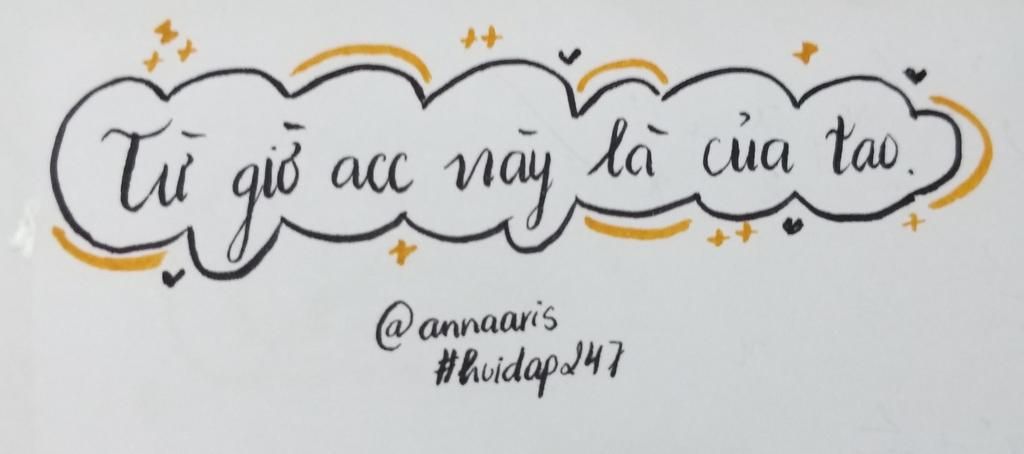 Từ giờ acc này là của tao.
@annaaris
#hoidap247